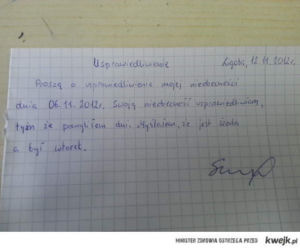 Usprawiedliwienie
Ligota, 12.11.2012r.
Proszę o usprawiedliwienie mojej nieobecności
dnia 06.11.2012r. Swoją nieobecność usprawiedliwiam,
tym że pomyliłem dni. Myślałem, że jest środa
a był wtorek.
MINISTER ZDROWIA OSTRZEGA PRZED kwejk.pl